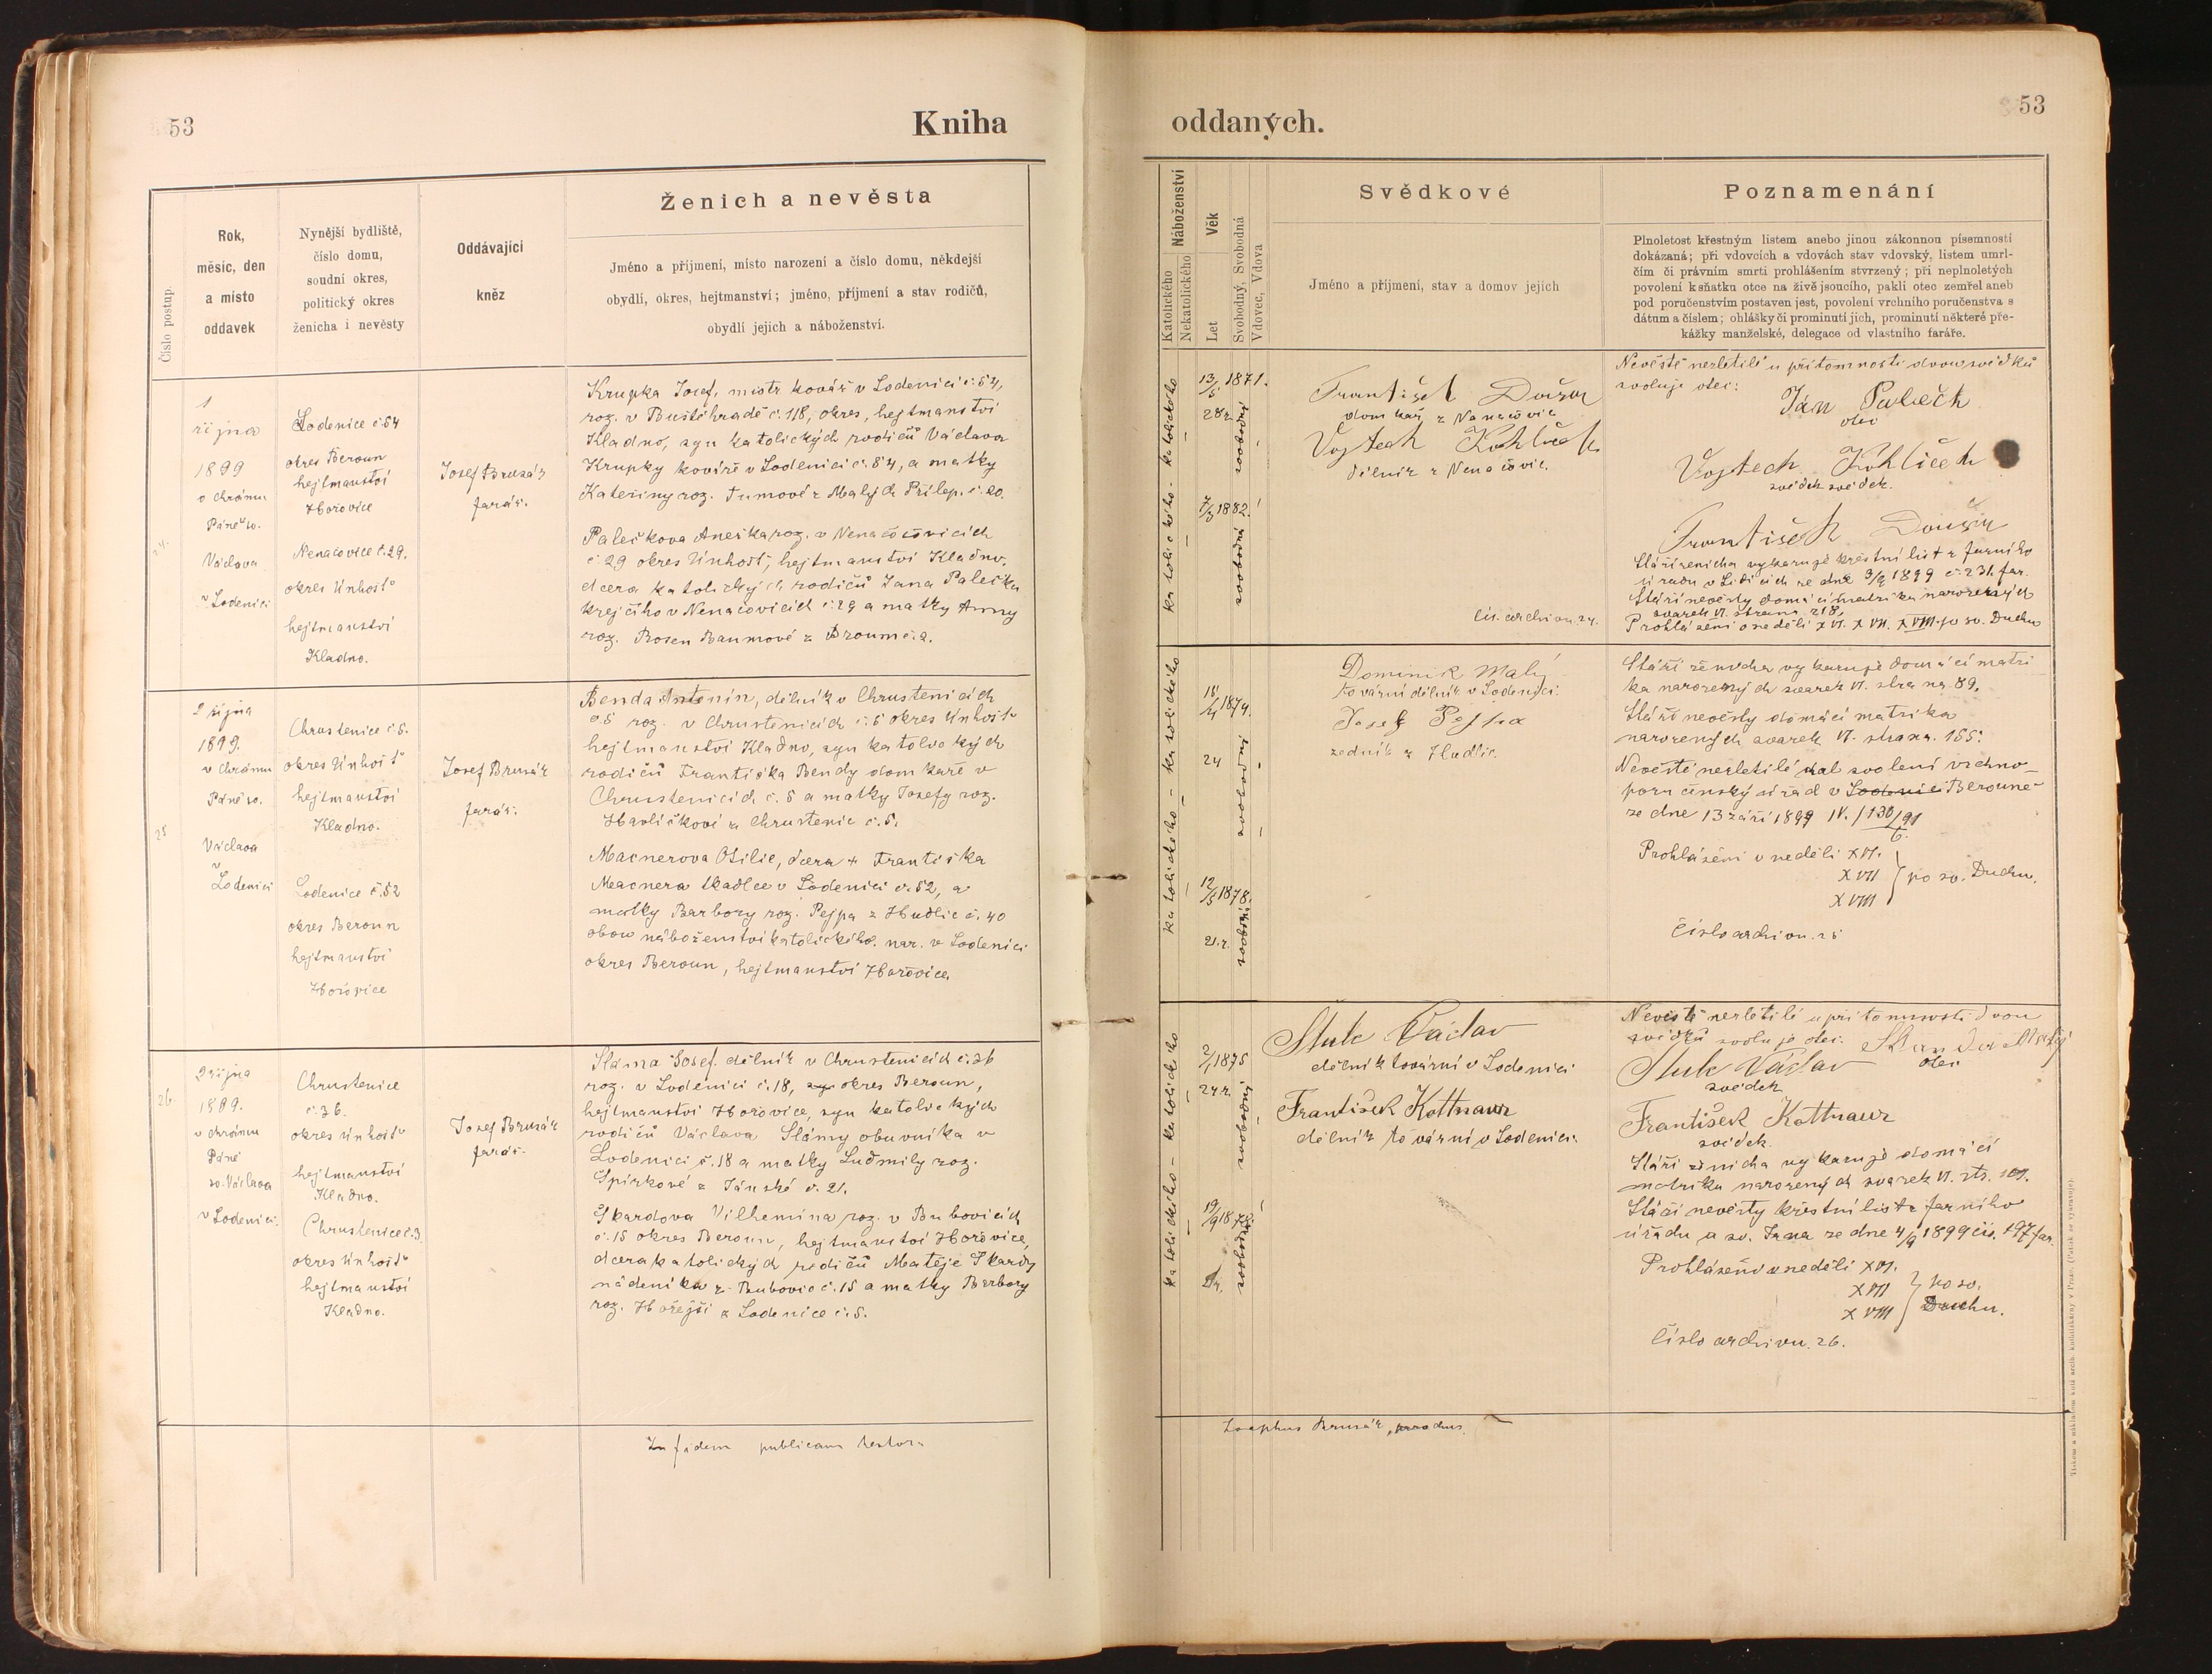 53
Kniha
Číslo postup.
Rok,
měsíc, den
a místo
oddavek
Nynější bydliště,
číslo domu,
soudní okres,
politický okres
ženicha i nevěsty
Oddávající
kněz
Ženich a nevěsta
Jméno a příjmení, místo narození a číslo domu, někdejší
obydlí, okres, hejtmanství; jméno, příjmení a stav rodičů,
obydlí jejich a náboženství.
24.
1
října
1899
v chrámu
Páně sv.
Václava
v Lodenici
Lodenice č. 54
okres Beroun
hejtmanství
Hořovice
Nenačovice č. 29.
okres Unhošť
hejtmanství
Kladno.
Josef Brusák
farář.
Krupka Josef, mistr kovář v Lodenici č. 54,
roz. v Buštěhradě č. 118, okres, hejtmanství
Kladno, syn katolických rodičů Václava
Krupky kováře v Lodenici č. 54, a matky
Kateřiny roz. Tumové z Malých Přílep. č. 20.
Palečkova Anežka roz. v Nenačovicích
č. 29 okres Unhošť, hejtmanství Kladno.
dcera katolických rodičů Jana Palečka
krejčího v Nenačovicích č. 29 a matky Anny
roz. Rosen Baumové z Broum č. 2.
25
2 října
1899.
v chrámu
Páně sv.
Václava
v
Lodenici
Chrustenice č. 5.
okres Unhošť
hejtmanství
Kladno.
Lodenice č. 52
okres Beroun
hejtmanství
Hořovice
Josef Brusák
farář.
Benda Antonín, dělník v Chrustenicích
č. 5 roz. v Chrustenicích č. 5 okres Unhošť
hejtmanství Kladno, syn katolických
rodičů Františka Bendy domkáře v
Chrustenicích č. 5 a matky Josefy roz.
Havlíčkové z Chrustenic č. 5.
Macnerova Otilie, dcera + Františka
Macnera tkadlce v Lodenici č. 52, a
matky Barbory roz. Pejpa z Hudlic č. 40
obou náboženství katolického. nar. v Lodenici
okres Beroun, hejtmanství Hořovice.
26.
2 října
1899.
v chrámu
Páně
sv. Václava
v Lodenici.
Chrustenice
č. 36.
okres Unhošť
hejtmanství
Kladno.
Chrustenice č. 3
okres Unhošť
hejtmanství
Kladno.
Josef Brusák
farář.
Sláma Josef. dělník v Chrustenicích č. 36
roz. v Lodenici č. 18, okres Beroun,
hejtmanství Hořovice, syn katolických
rodičů Václava Slámy obuvníka v
Lodenici č. 18 a matky Ludmily roz.
Spirkové z Jánské č. 21.
Skardova Vilhemina roz. v Bubovicích
č. 15 okres Beroun, hejtmanství Hořovice,
dcera katolických rodičů Matěje Skardy
nádeníka z Bubovic č. 15 a matky Barbory
roz. Hořejší z Lodenice č. 5.
In fidem publicam testor.
53
oddaných.
Náboženství
Katolického
Nekatolického
Věk
Let
Svobodný, Svobodná
Vdovec, Vdova
Svědkové
Jméno a příjmení, stav a domov jejich
Poznamenání
Plnoletost křestným listem anebo jinou zákonnou písemností
dokázaná; při vdovcích a vdovách stav vdovský, listem umrl-
čím či právním smrti prohlášením stvrzený; při neplnoletých
povolení k sňatku otce na živě jsoucího, pakli otec zemřel aneb
pod poručenstvím postaven jest, povolení vrchního poručenstva s
dátum a číslem; ohlášky či prominutí jich, prominutí některé pře-
kážky manželské, delegace od vlastního faráře.
katolického - katolického
13/5 1871.
28 r.
svobodný
7/3 1882.
svobodná
František Doušа
domkář z Nenačovic
Vojtech Kohlíček
dělník z Nenačovic.
čís. archivu. 24.
Nevěstě nezletilé u přítomnosti dvou svědků
svoluje otec:
Ján Paleček
otec
Vojtech Kohlíček
svědek svědek.
František Douša
Stáří ženicha vykazuje křestní list z farního
úřadu v Lidicích ze dne 3/9 1899 č. 231. far.
Stáří nevěsty domácí matrika narozených
svazek VI. strana 218,
Prohlášení v neděli XVI. XVII. XVIII. po sv. Duchu
katolického - katolického
1874.
24
svobodný
12/5 1878.
21. r.
svobodná
Dominik Malý
tovární dělník v Lodenici.
Josef Pejpa
zedník z Hudlic.
Stáří ženicha vykazuje domácí matri
ka narozených svazek VI. strana. 89.
Stáří nevěsty domácí matrika
narozených svazek VI. strana. 155.
Nevěstě nezletilé dal svolení vrchno-
poručenský úřad v Lodenici Berouně
ze dne 13 září 1899 IV. / 130/91
6.
Prohlášení v neděli XVI.
XVII
XVIII
po sv. Duchu.
Číslo archivu. 25
katolického - katolického
2/1 1875
24 r.
svobodný
19/9 1878.
svobodná
Stuk Václav
dělník tovární v Lodenici
František Kottnauer
dělník tovární v Lodenici.
Nevěstě nezletilé u přítomnosti dvou
svědků svoluje otec. Skarda Matěj
otec
Stuk Václav
svědek
František Kottnauer
svědek.
Stáří ženicha vykazuje domácí
matrika narozených svazek VI. str. 101.
Stáří nevěsty křestní list z farního
úřadu u sv. Jana ze dne 4/9 1899 čís. 197 far.
Prohlášení v neděli XVI.
XVII
XVIII
po sv.
Duchu.
Číslo archivu. 26.
Josephus Brusák, parochus.